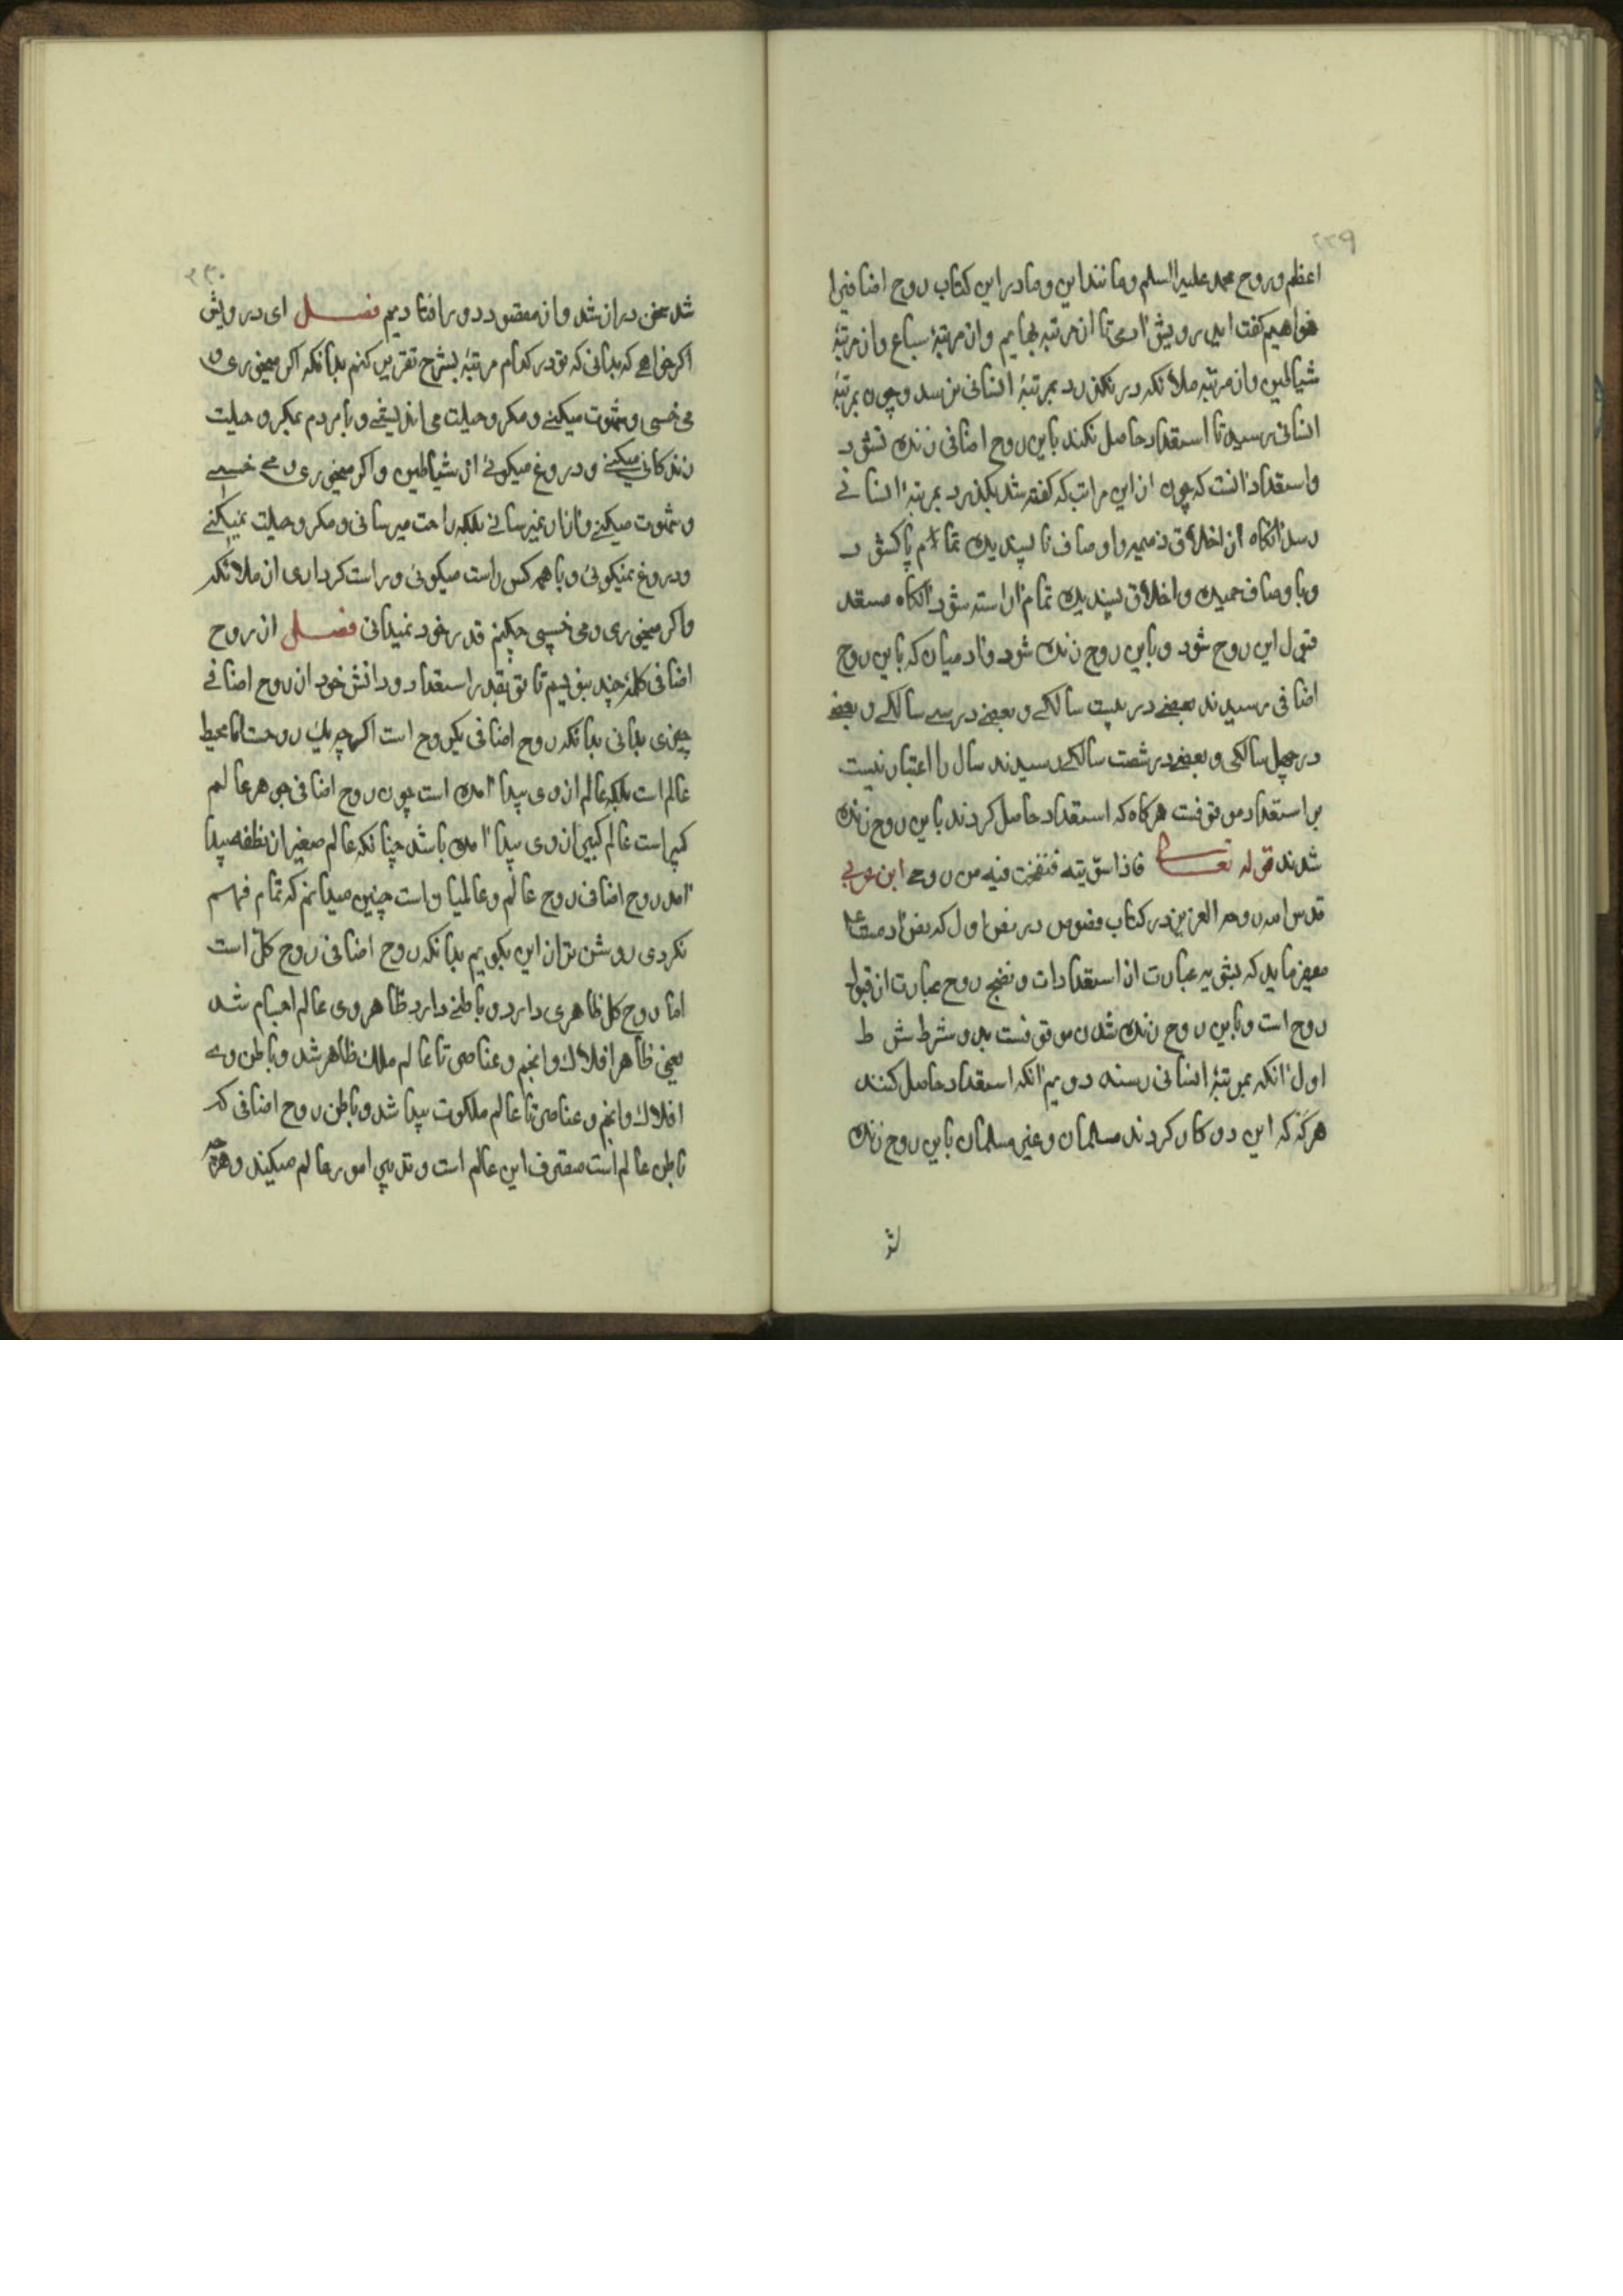 ۲۲۹
اعظم و روح محمد علیه السلم و مانند این و ما در این کتاب روح اضافیرا
خواهیم گفت ای درویش آدمی تا از مرتبه بهایم و از مرتبهٔ سباع و از مرتبهٔ
شیاطین و از مرتبه ملائکه در نکذرد بمرتبهٔ انسانی نرسد و چون بمرتبهٔ
انسانی رسید تا استعداد حاصل نکند باین روح اضافی زنده نشود
و استعداد آنست که چون از این مراتب که گفته شد بکذرد بمرتبهٔ انسانی
رسد آنکاه از اخلاق ذمیمه و اوصاف ناپسندیده تمام پاک شود
و با وصاف حمیده و اخلاق پسندیده تمام آراسته شود آنکاه مستعد
قبول این روح شود و باین روح زنده شود و آدمیان که باین روح
اضافی رسیدند بعضی در بیست سالکی و بعضی در سی سالکی و بعضی
در چهل سالکی و بعضی در شصت سالکی رسیدند سال را اعتبار نیست
بر استعداد موقوفست هرکاه که استعداد حاصل کردند باین روح زنده
شدند قوله تعالی فاذا سویته فنفخت فیه من روحی ابن عربی
قدس الله روحه العزیز در کتاب فصوص در فص اول که فص آدمست
میفرماید که تسویه عبارت از استعدادات و نفخ روح عبارت از قبول
روح است و باین روح زنده شدن موقوفست بدو شرط شرط
اول آنکه بمرتبهٔ انسانی رسند دویم آنکه استعداد حاصل کنند
هرکه که این دو کار کردند مسلمان و غیر مسلمان باین روح زنده
شد
۲۳۰
شد سخن دراز شد و از مقصود دور افتادیم فصل ای درویش
اکر خواهی که بدانی که تو در کدام مرتبهٔ بشرح تقریر کنم بدانکه اکر میخوری و
می خسبی و شهوت میکنی و مکر و حیلت می اندیشی و با مردم بمکر و حیلت
زندکانی میکنی و دروغ میکوئی از شیاطین و اکر میخوری و می خسبی
و شهوت میکنی و آزار نمیرسانی بلکه راحت میرسانی و مکر و حیلت نمیکنی
و دروغ نمیکوئی و با همه کس راست میکوئی و راست کرداری از ملائکه
و اکر میخوری و می خسبی چکنم قدر خود نمیدانی فصل از روح
اضافی کلمهٔ چند بنویسم تا تو بقدر استعداد و دانش خود از روح اضافی
چیزی بدانی بدانکه روح اضافی یکروح است اکرچه یک روحست اما محیط
عالم است بلکه عالم از وی پیدا آمده است چون روح اضافی جوهر عالم
کبیر است عالم کبیر از وی پیدا آمده باشد چنانکه عالم صغیر از نطفه پیدا
آمد روح اضافی روح عالم و عالمیان است چنین میدانم که تمام فهم
نکردی روشن تر از این بکویم بدانکه روح اضافی روح کل است
اما روح کل ظاهری دارد و باطنی دارد ظاهر وی عالم اجسام شد
یعنی ظاهر افلاک و انجم و عناصر تا عالم ملک ظاهر شد و باطن وی
افلاک و انجم و عناصر تا عالم ملکوت پیدا شد و باطن روح اضافی که
باطن عالم است متصرف این عالم است و تدبیر امور عالم میکند و هرچه